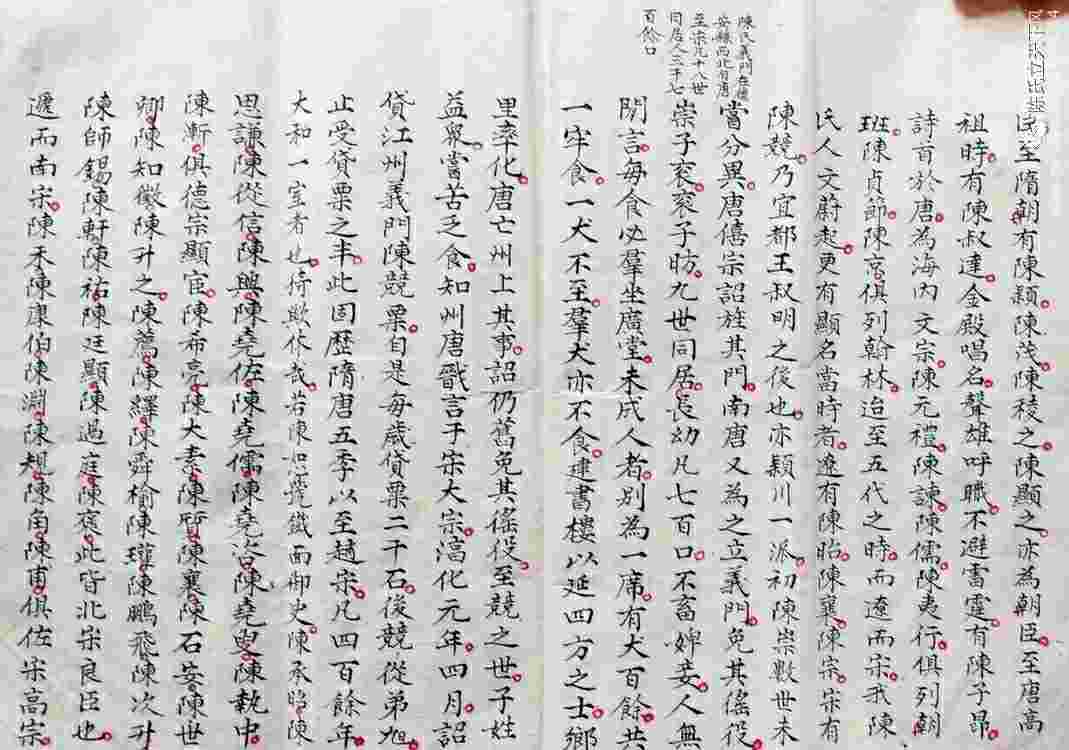 臣至隋朝有陳頴陳茂陳稜之陳顯之亦為朝臣至唐高
祖時有陳叔達金殿唱名聲雄呼職不避雷霆有陳子昂
詩首於唐為海内文宗陳元禮陳諫陳儒陳夷行俱列朝
班陳貞節陳京俱列翰林迨至五代之時而遼而宋我陳
氏人文蔚起更有顯名當時者遼有陳昭陳襄陳宗宗有
陳競乃宜都王叔明之後也亦穎川一派初陳崇數世未
嘗分異唐僖宗詔旌其門南唐又為之立義門免其傜役
崇子衮衮子昉九世同居長幼凡七百口不畜婢妾人無
陳氏義門在德
安縣西北有唐
至宋凡十八世
同居人三千七
百餘口
閒言每食必羣坐廣堂未成人者别為一席有犬百餘共
一牢食一犬不至羣犬亦不食建書樓以延四方之士鄉
里率化唐亡州上其事詔仍舊免其傜役至競之世子姓
益衆嘗苦乏食知州唐戬言于宋大宗淳化元年四月詔
貸江州義門陳競粟自是每歲貸粟二千石後競從弟旭
止受貸粟之半此固歷隋唐五季以至趙宋凡四百餘年
大和一室者也猗歟休哉若陳如號鐵面御史陳承昭陳
思謙陳從信陳興陳堯佐陳堯儒陳堯咨陳堯叟陳執中
陳漸俱德宗顯宦陳布亮陳大素陳質陳襄陳石安陳世
卿陳知微陳升之陳薦陳繹陳舜榆陳瓘陳鵬飛陳次升
陳師錫陳軒陳祐陳廷顯陳過庭陳褒此皆北宋良臣也
遷而南宋陳禾陳康伯陳淵陳規陳角陳甫俱佐宗高宗